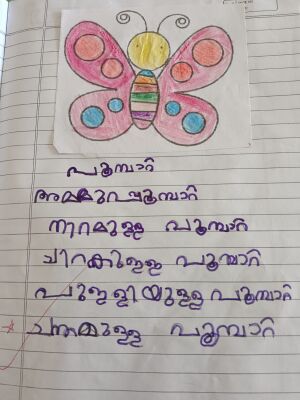 പൂമ്പാറ്റ
അമ്മുപൂമ്പാറ്റ
നിറമുള്ള പൂമ്പാറ്റ
ചിറകുള്ള പൂമ്പാറ്റ
പുള്ളിയുള്ള പൂമ്പാറ്റ
ചന്തമുള്ള പൂമ്പാറ്റ